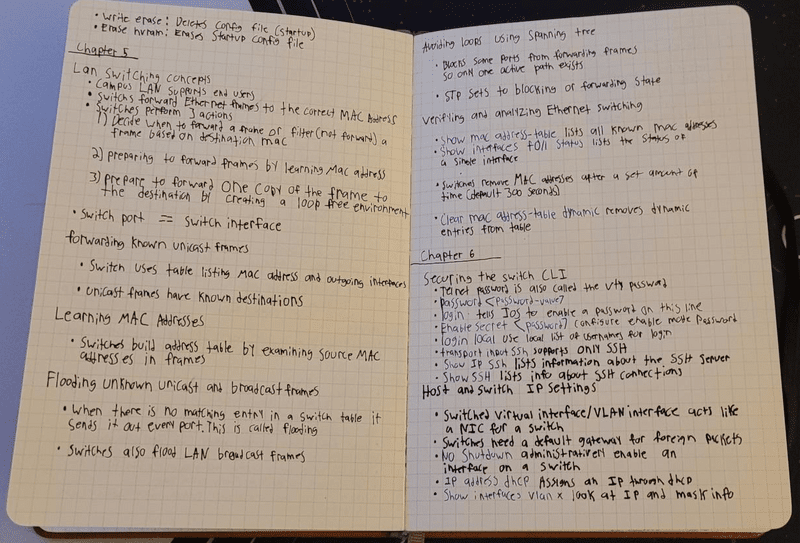 • Write erase: Deletes config file (startup)
• Erase nvram: Erases Startup config file
Chapter 5
Lan switching concepts
• Campus LAN supports end users
• Switchs forward Ethernet frames to the correct MAC Address
• Switches perform 3 actions
1) Decide when to forward a frame or filter (not forward) a
frame based on destination mac
2) preparing to forward frames by learning Mac address
3) prepare to forward one copy of the frame to
the destination by creating a loop free environment
• Switch port == switch interface
forwarding known unicast frames
• Switch uses table listing MAC address and outgoing interfaces
• unicast frames have known destinations
Learning MAC Addresses
• Switches build address table by examining source MAC
addresses in frames
Flooding unknown unicast and broadcast frames
• When there is no matching entry in a switch table it
sends it out every port. This is called flooding
• Switches also flood LAN broadcast frames
Avoiding loops using Spanning tree
• Blocks some ports from forwarding frames
so only one active path exists
• STP sets to blocking or forwarding state
Verifiing and analyzing Ethernet switching
• Show mac address-table lists all known mac addresses
• Show interfaces f0/1 Status lists the status of
a single interface
• Switches remove MAC addresses after a set amount of
time (default 300 seconds)
• Clear mac address-table dynamic removes dynamic
entries from table
Chapter 6
Securing the switch CLI
• Telnet password is also called the vty password
• password <password-value>
• login tells IOS to enable a password on this line
• Enable secret <password> configure enable mode password
• login local use local list of usernames for login
• transport input ssh supports only SSH
• Show IP ssh lists information about the SSH server
• Show SSH lists info about SSH connections
Host and switch IP settings
• Switched virtual interface/VLAN interface acts like
a NIC for a switch
• Switches need a default gateway for foreign packets
• No Shutdown administratively enable an
interface on a switch
• IP address dhcp Assigns an IP through dhcp
• Show interfaces vlan x look at IP and mask info